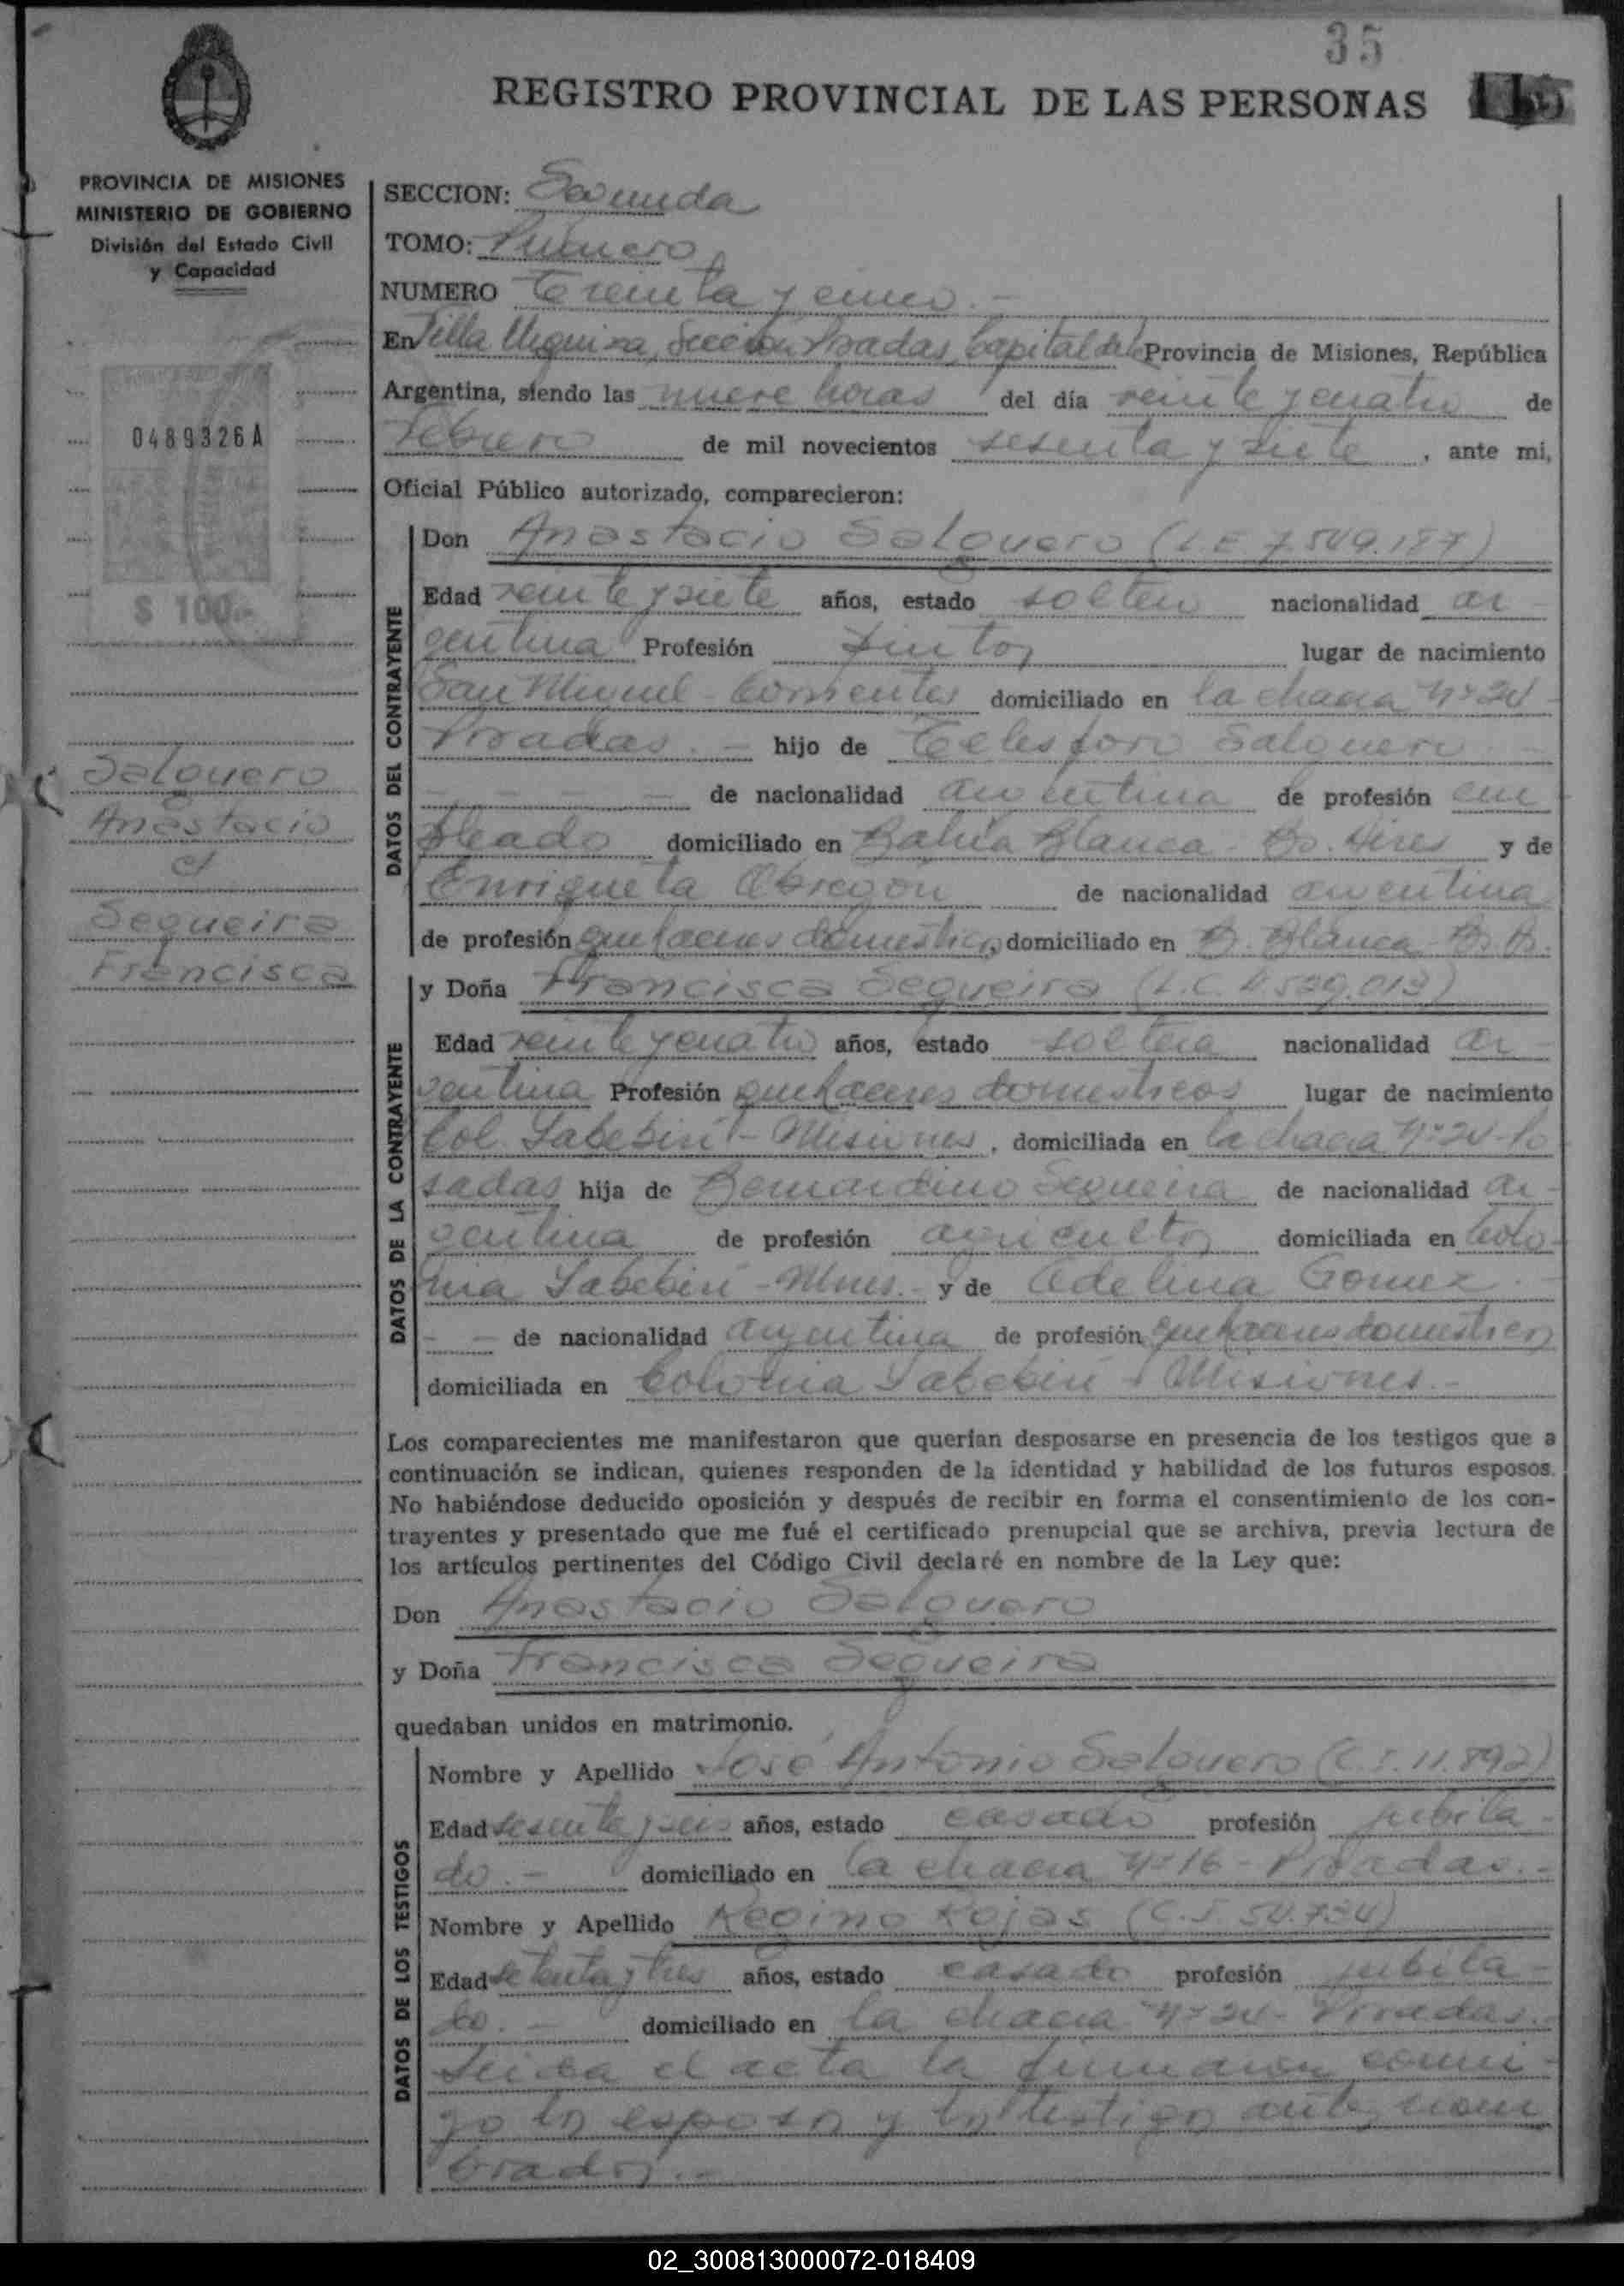 35
REGISTRO PROVINCIAL DE LAS PERSONAS
PROVINCIA DE MISIONES
MINISTERIO DE GOBIERNO
División del Estado Civil
y Capacidad
0489326A
$ 100.-
Salguero
Anastacio
c/
Sequeira
Francisca
SECCION: Segunda
TOMO: Primero
NUMERO Treinta y cinco.-
En Villa Urquiza, Sección Posadas, Capital de la Provincia de Misiones, República
Argentina, siendo las nueve horas del día veinte y cuatro de
Febrero de mil novecientos sesenta y siete, ante mi,
Oficial Público autorizado, comparecieron:
DATOS DEL CONTRAYENTE
Don Anastacio Salguero (L.E 7.549.187)
Edad veinte y siete años, estado soltero nacionalidad ar-
gentina Profesión pintor lugar de nacimiento
San Miguel - Corrientes domiciliado en la chacra Nº 24-
Posadas.- hijo de Telesforo Salguero -
- - - - de nacionalidad argentina de profesión em
pleado domiciliado en Bahía Blanca - Bs. Aires y de
Enriqueta Obregón de nacionalidad argentina
de profesión quehaceres domésticos domiciliado en B. Blanca - Bs. As.
DATOS DE LA CONTRAYENTE
y Doña Francisca Sequeira (L.C. 4.539.013)
Edad veinte y cuatro años, estado soltera nacionalidad ar-
gentina Profesión quehaceres domesticos lugar de nacimiento
Col. Yabebirí - Misiones, domiciliada en la chacra Nº 24-Po
sadas hija de Bernardino Sequeira de nacionalidad ar-
gentina de profesión agricultor domiciliada en Colo-
nia Yabebirí - Mnes.- y de Adelina Gomez.-
- - de nacionalidad argentina de profesión quehaceres domesticos
domiciliada en Colonia Yabebirí - Misiones.-
Los comparecientes me manifestaron que querían desposarse en presencia de los testigos que a
continuación se indican, quienes responden de la identidad y habilidad de los futuros esposos.
No habiéndose deducido oposición y después de recibir en forma el consentimiento de los con-
trayentes y presentado que me fué el certificado prenupcial que se archiva, previa lectura de
los artículos pertinentes del Código Civil declaré en nombre de la Ley que:
Don Anastacio Salguero
y Doña Francisca Sequeira
quedaban unidos en matrimonio.
DATOS DE LOS TESTIGOS
Nombre y Apellido José Antonio Salguero (C.I. 11.892)
Edad sesenta y seis años, estado casado profesión jubila-
do.- domiciliado en la chacra Nº 16 - Posadas.-
Nombre y Apellido Regino Rojas (C.I 54.734)
Edad setenta y tres años, estado casado profesión jubila-
do.- domiciliado en la chacra Nº 24- Posadas.-
Leida el acta la firmaron conmi-
go los esposos y los testigos ante nom
brados.-
02_300813000072-018409